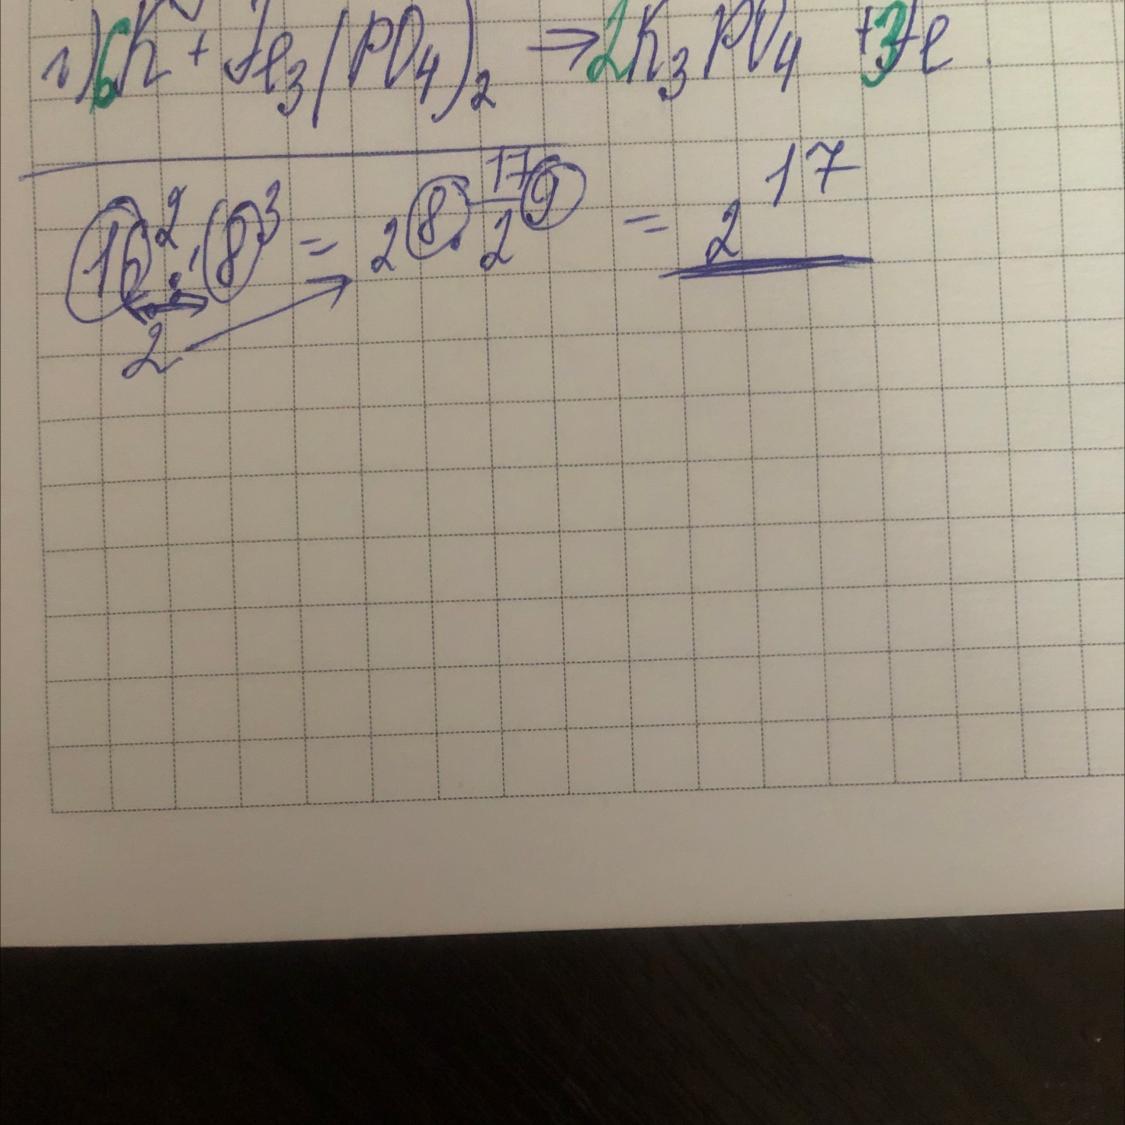 г) 6K + Fe₃(PO₄)₂ → 2K₃PO₄ + 3Fe
16² · 8³ = 2⁸ · 2⁹ = 2¹⁷
17
2